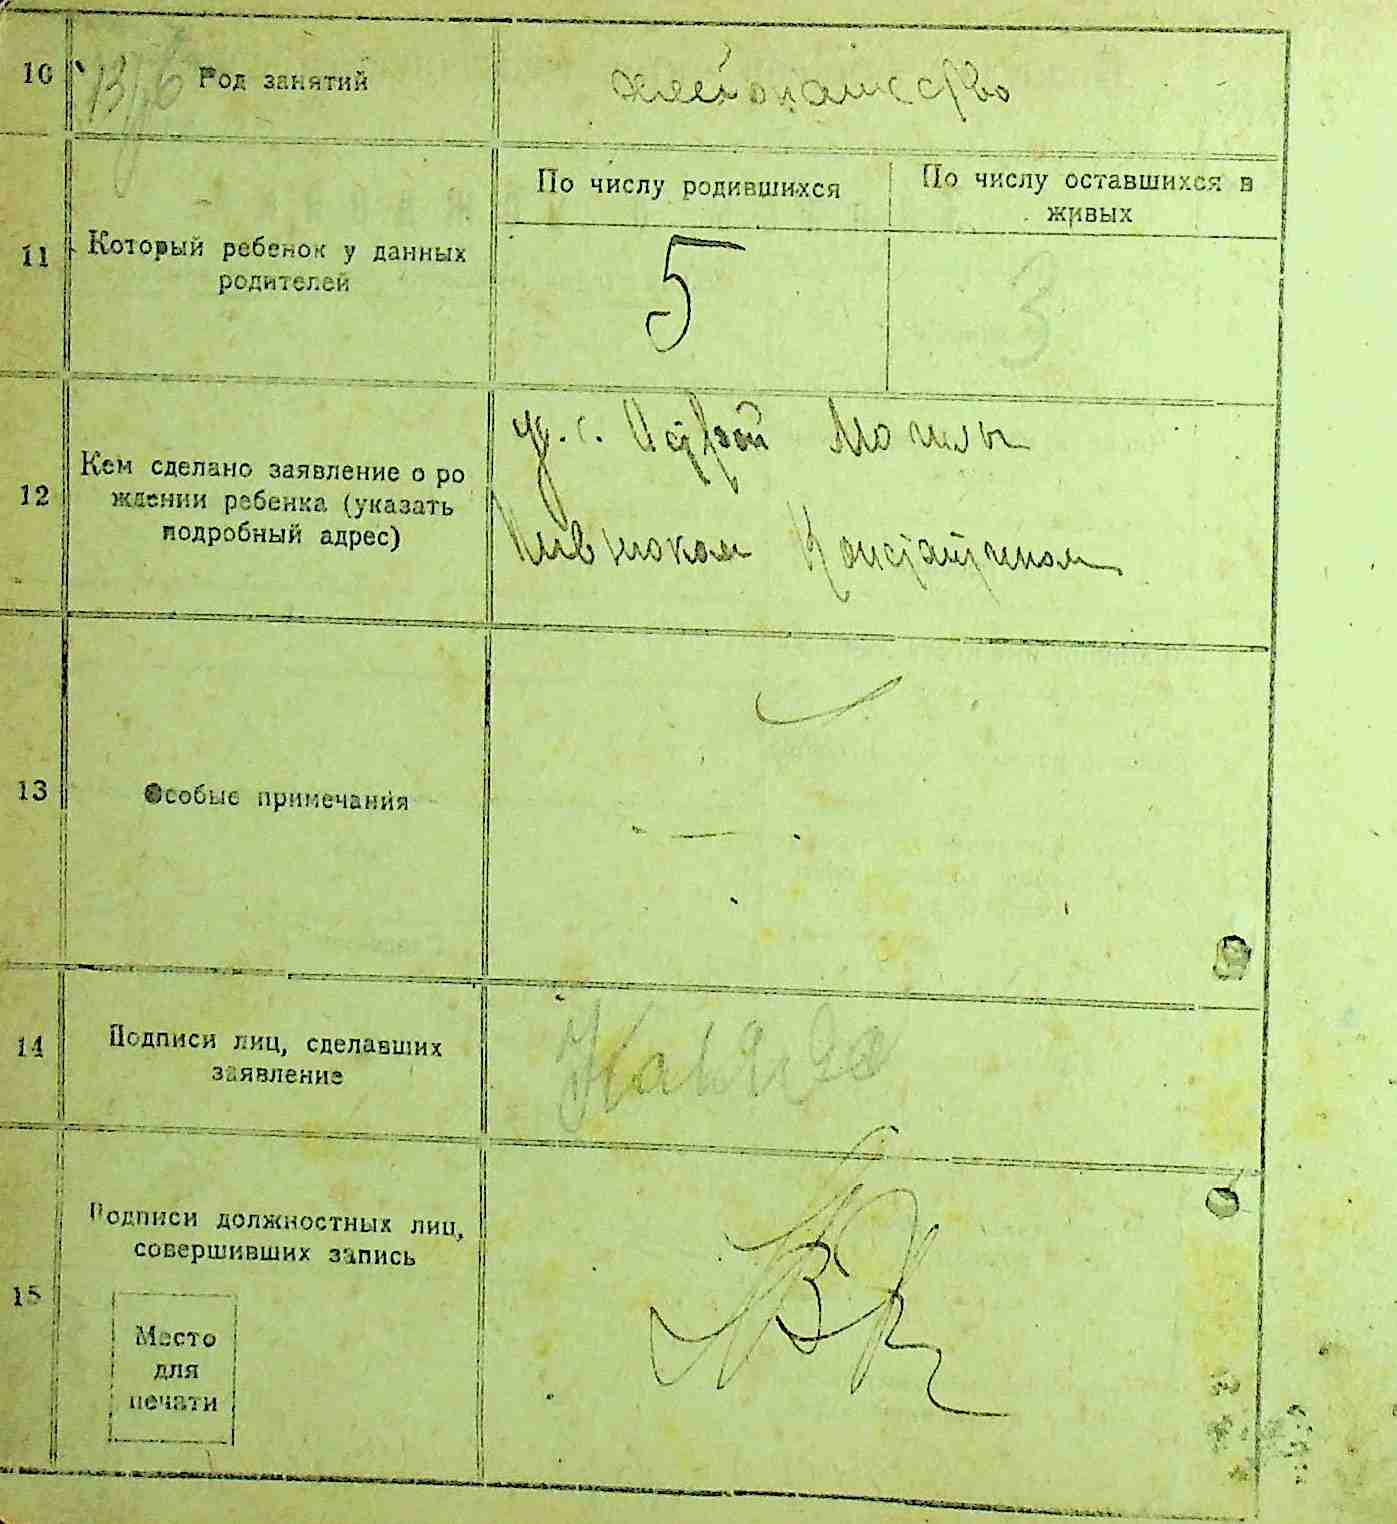 10 Род занятий хлебопашество
По числу родившихся По числу оставшихся в
живых
11 Который ребенок у данных
родителей
5 3
12 Кем сделано заявление о ро
ждении ребенка (указать
подробный адрес)
Могилы
Константином
13 Особые примечания
14 Подписи лиц, сделавших
заявление
15 Подписи должностных лиц,
совершивших запись
Место
для
печати